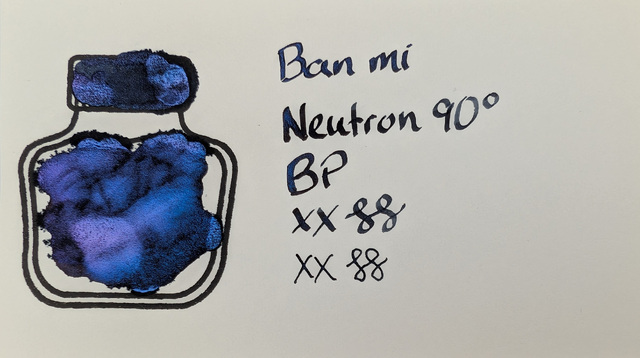 Ban mi
Neutron 90°
BP
XX 88
XX 88